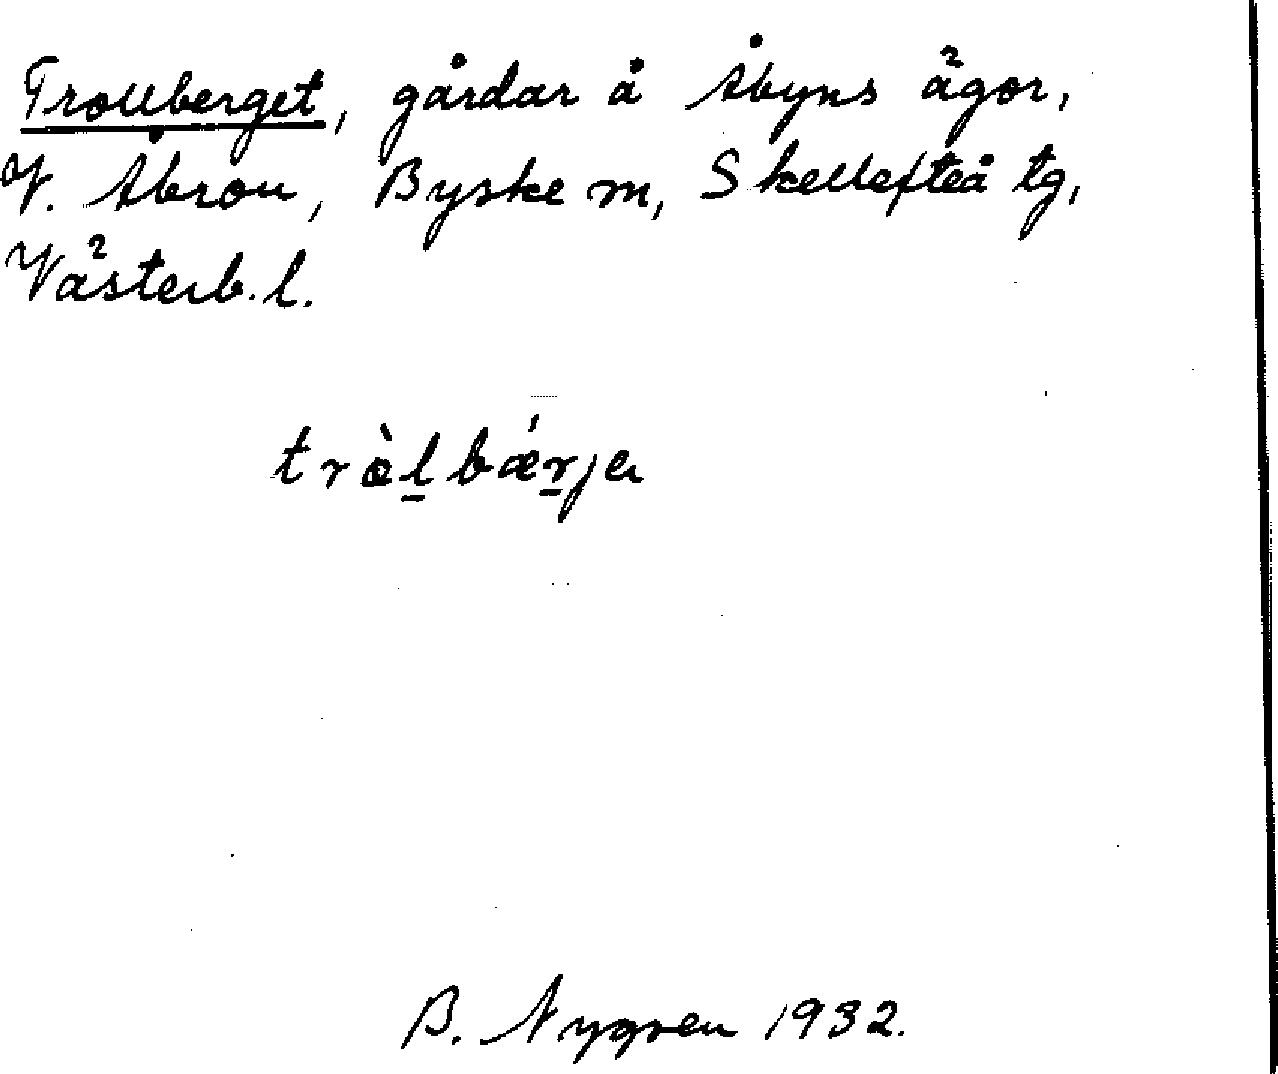 Trollberget, gårdar å Åbyns ägor,
V. Åbron, Byske sn, Skellefteå tg,
Västerb. l.
tròl̲bǽr̲ja
B. Nygren 1932.